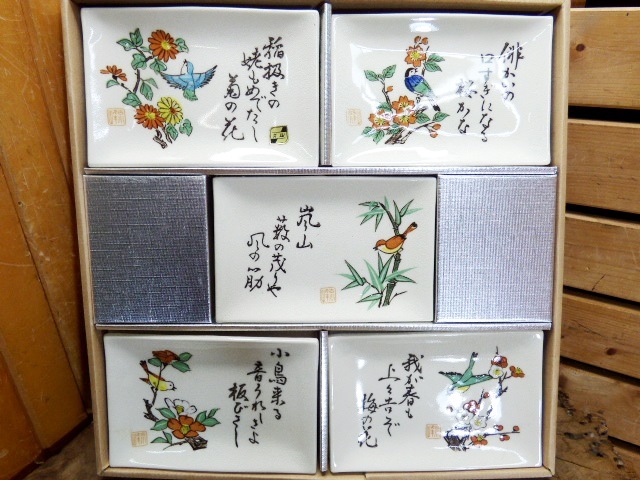 稲扱きの
姥もめでたし
菊の花
俳かいの
口すぎに
桜かな
嵐山
藪の茂りや
風の筋
小鳥来る
音うれしさよ
板びさし
我が春も
上々吉ぞ
梅の花